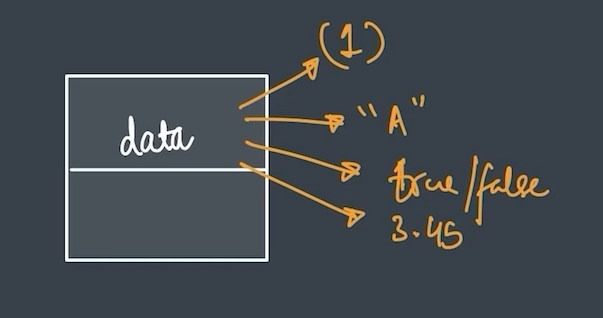 (1)
data
"A"
true/false
3.45